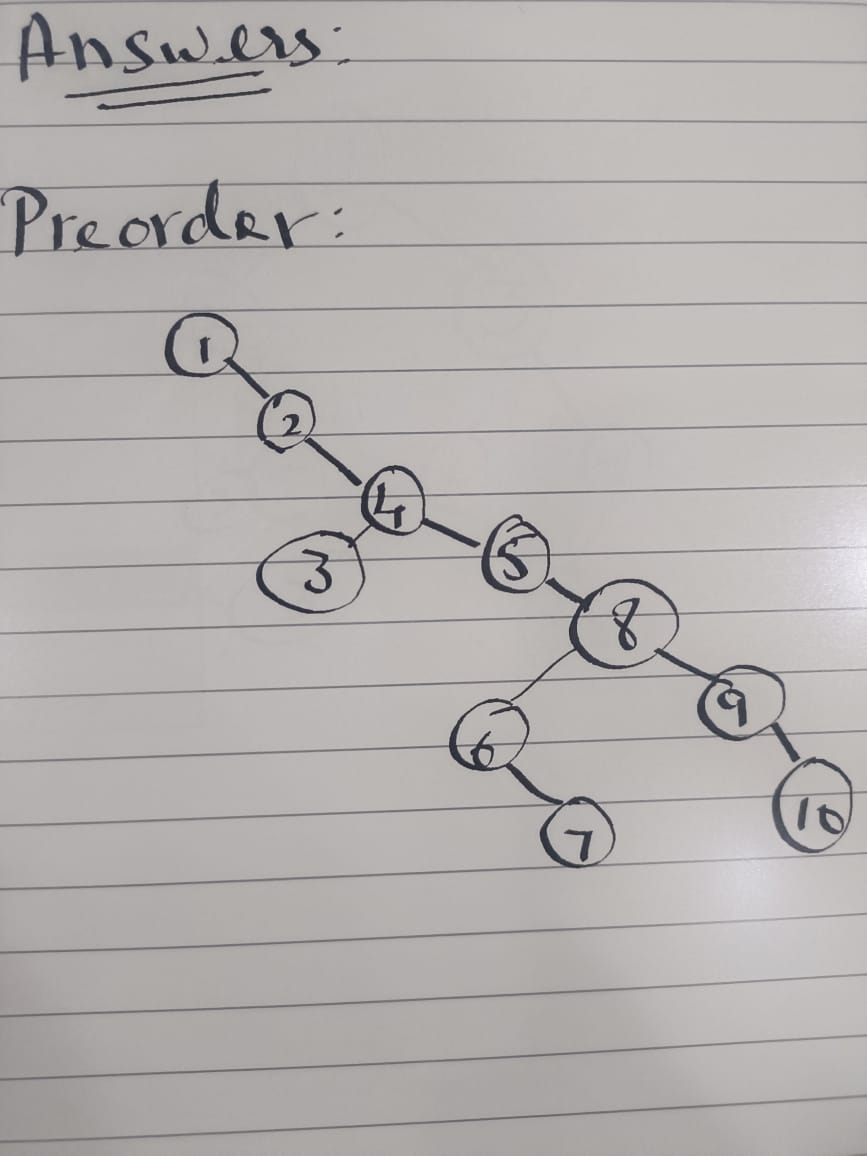 Answers:
Preorder:
1
2
4
3
5
8
9
6
10
7